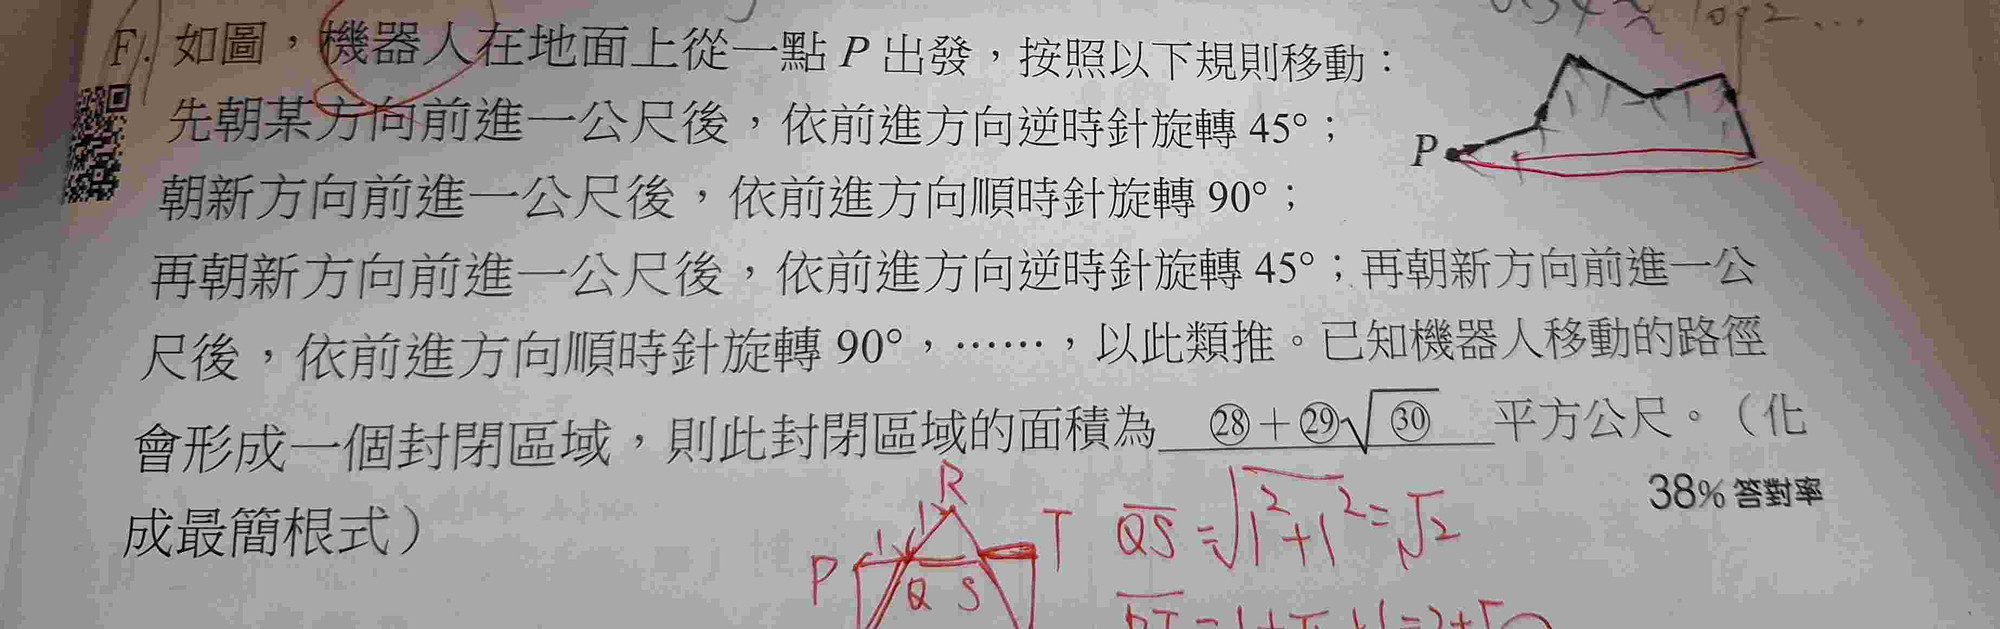 F. 如圖，機器人在地面上從一點 P 出發，按照以下規則移動：
先朝某方向前進一公尺後，依前進方向逆時針旋轉 45°；
朝新方向前進一公尺後，依前進方向順時針旋轉 90°；
再朝新方向前進一公尺後，依前進方向逆時針旋轉 45°；再朝新方向前進一公
尺後，依前進方向順時針旋轉 90°，……，以此類推。已知機器人移動的路徑
會形成一個封閉區域，則此封閉區域的面積為 ㉘+㉙√㉚ 平方公尺。（化
成最簡根式）
38% 答對率
P
R
1 1
T
P
Q S
QS = √1²+1² = √2